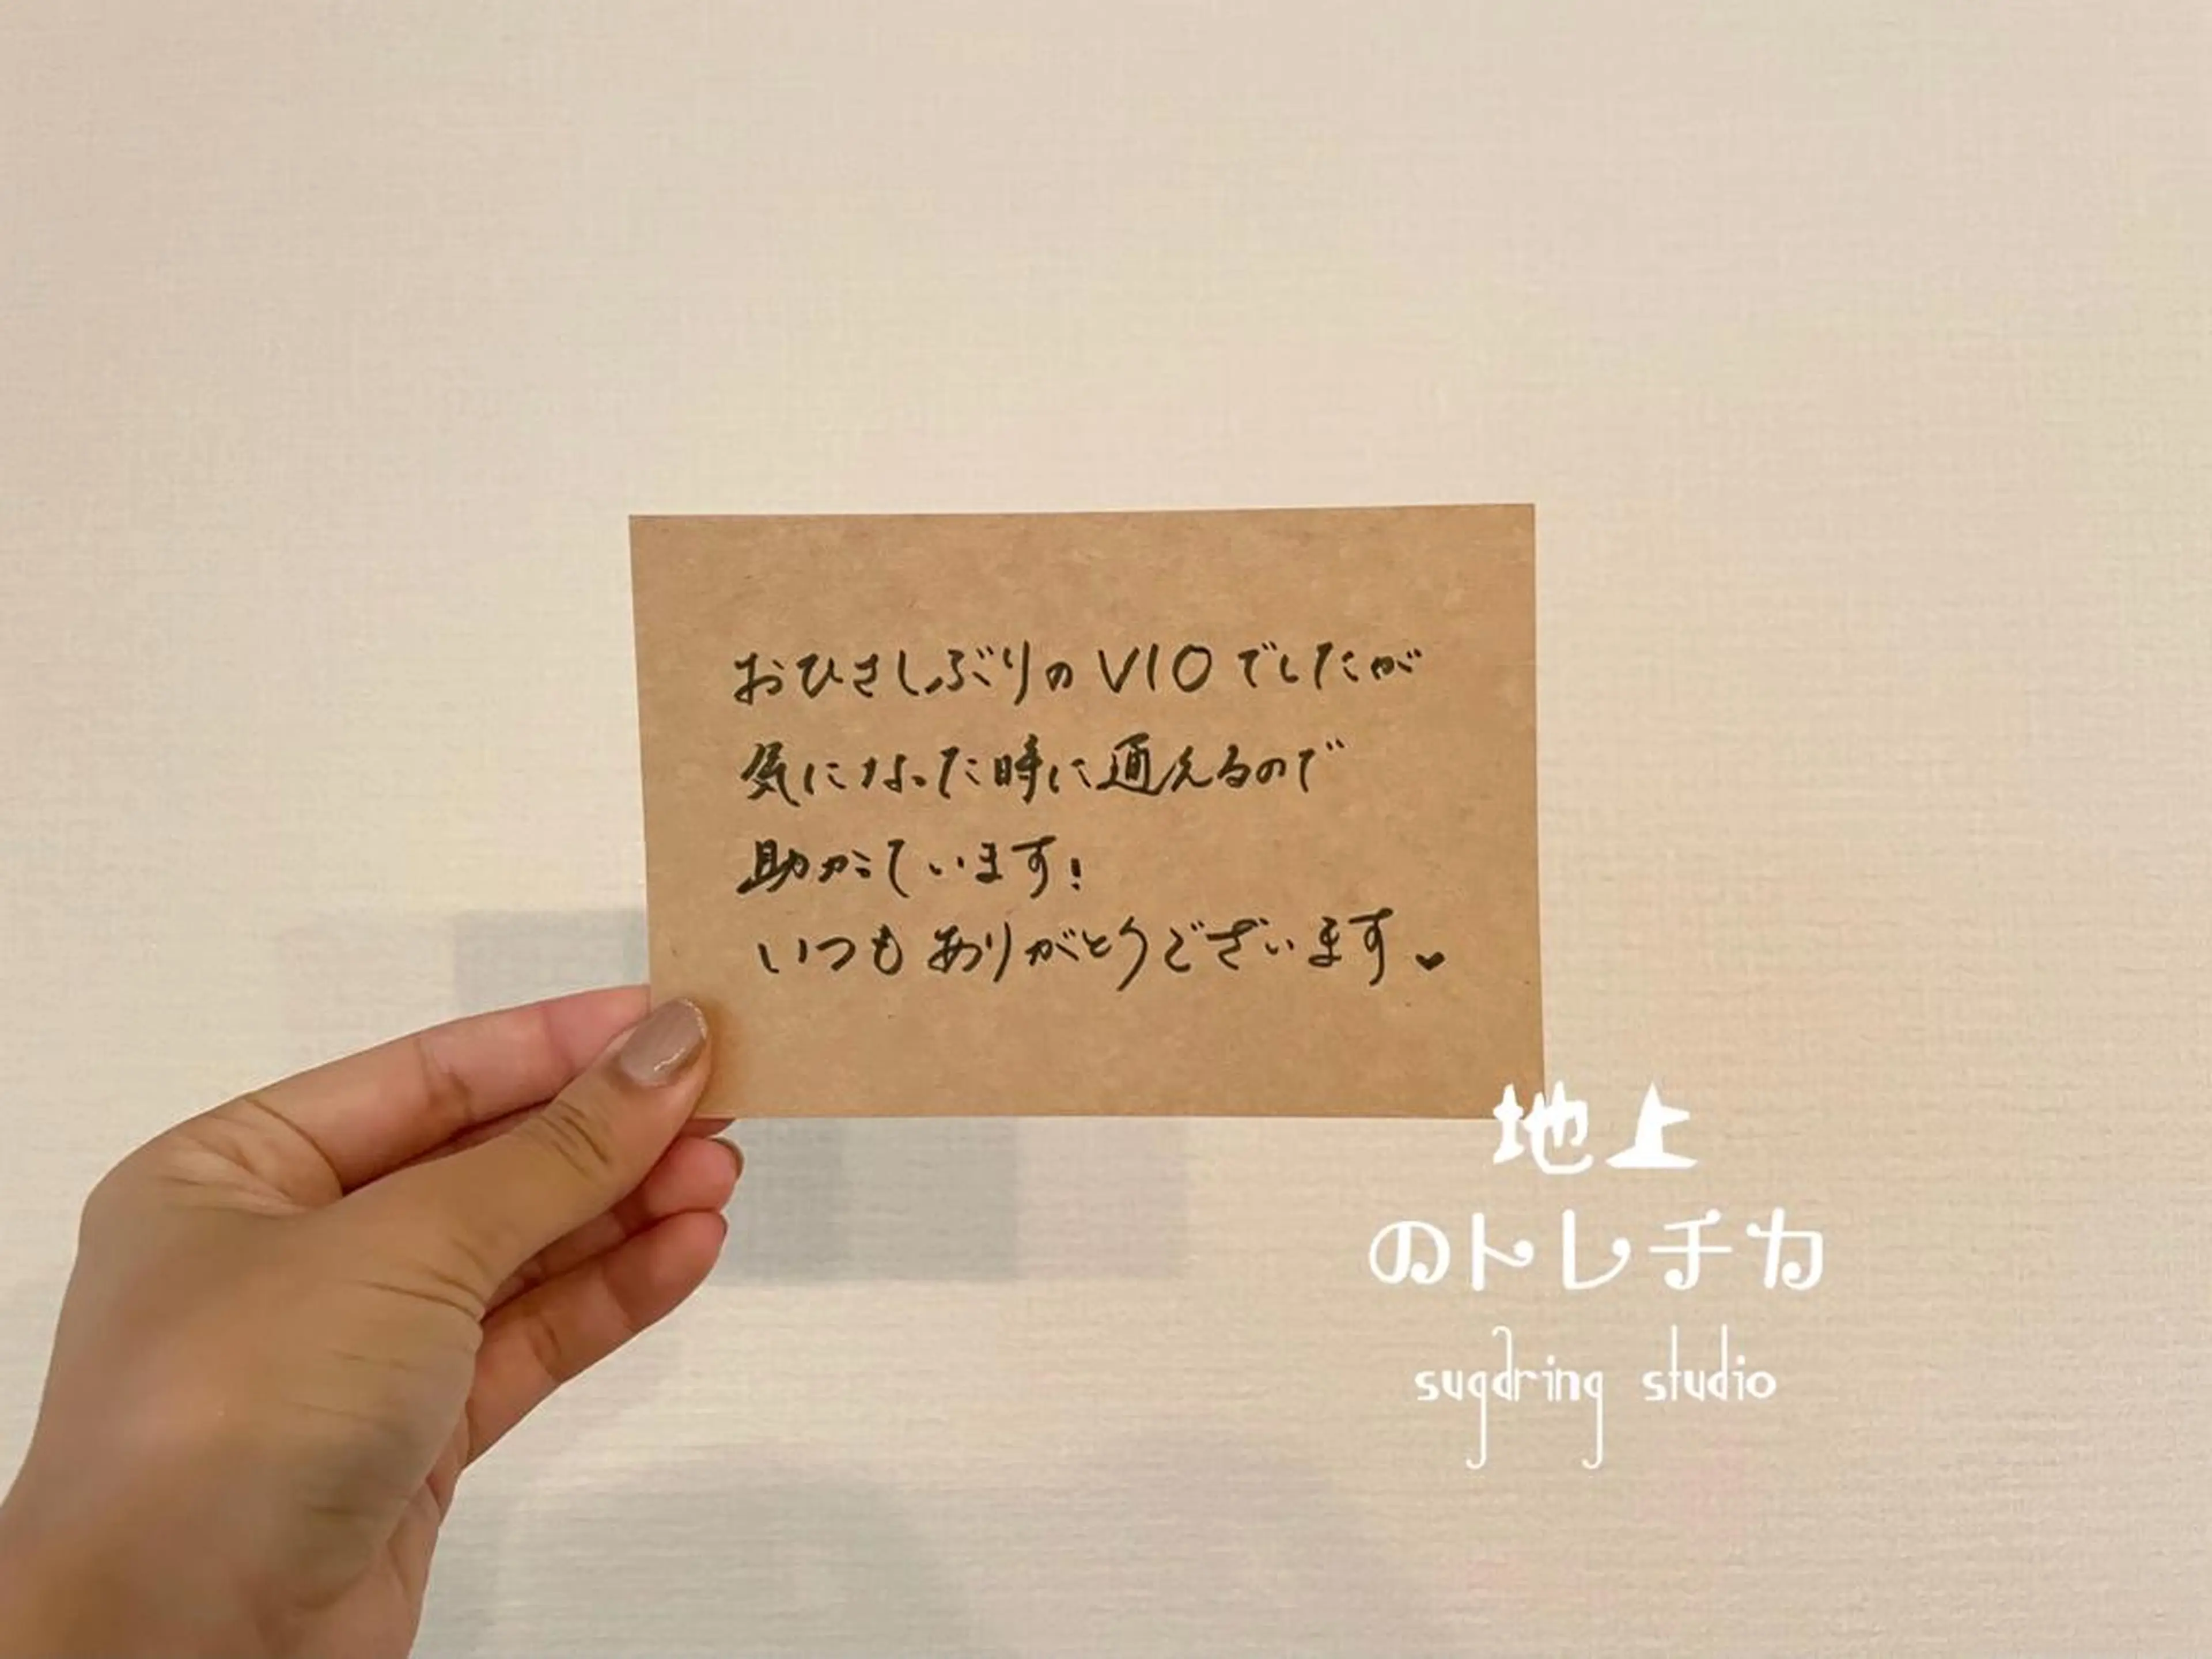 おひさしぶりのVIOでしたが
気になった時に通えるので
助かっています!
いつもありがとうございます♥
地上
のトレチカ
sugaring studio